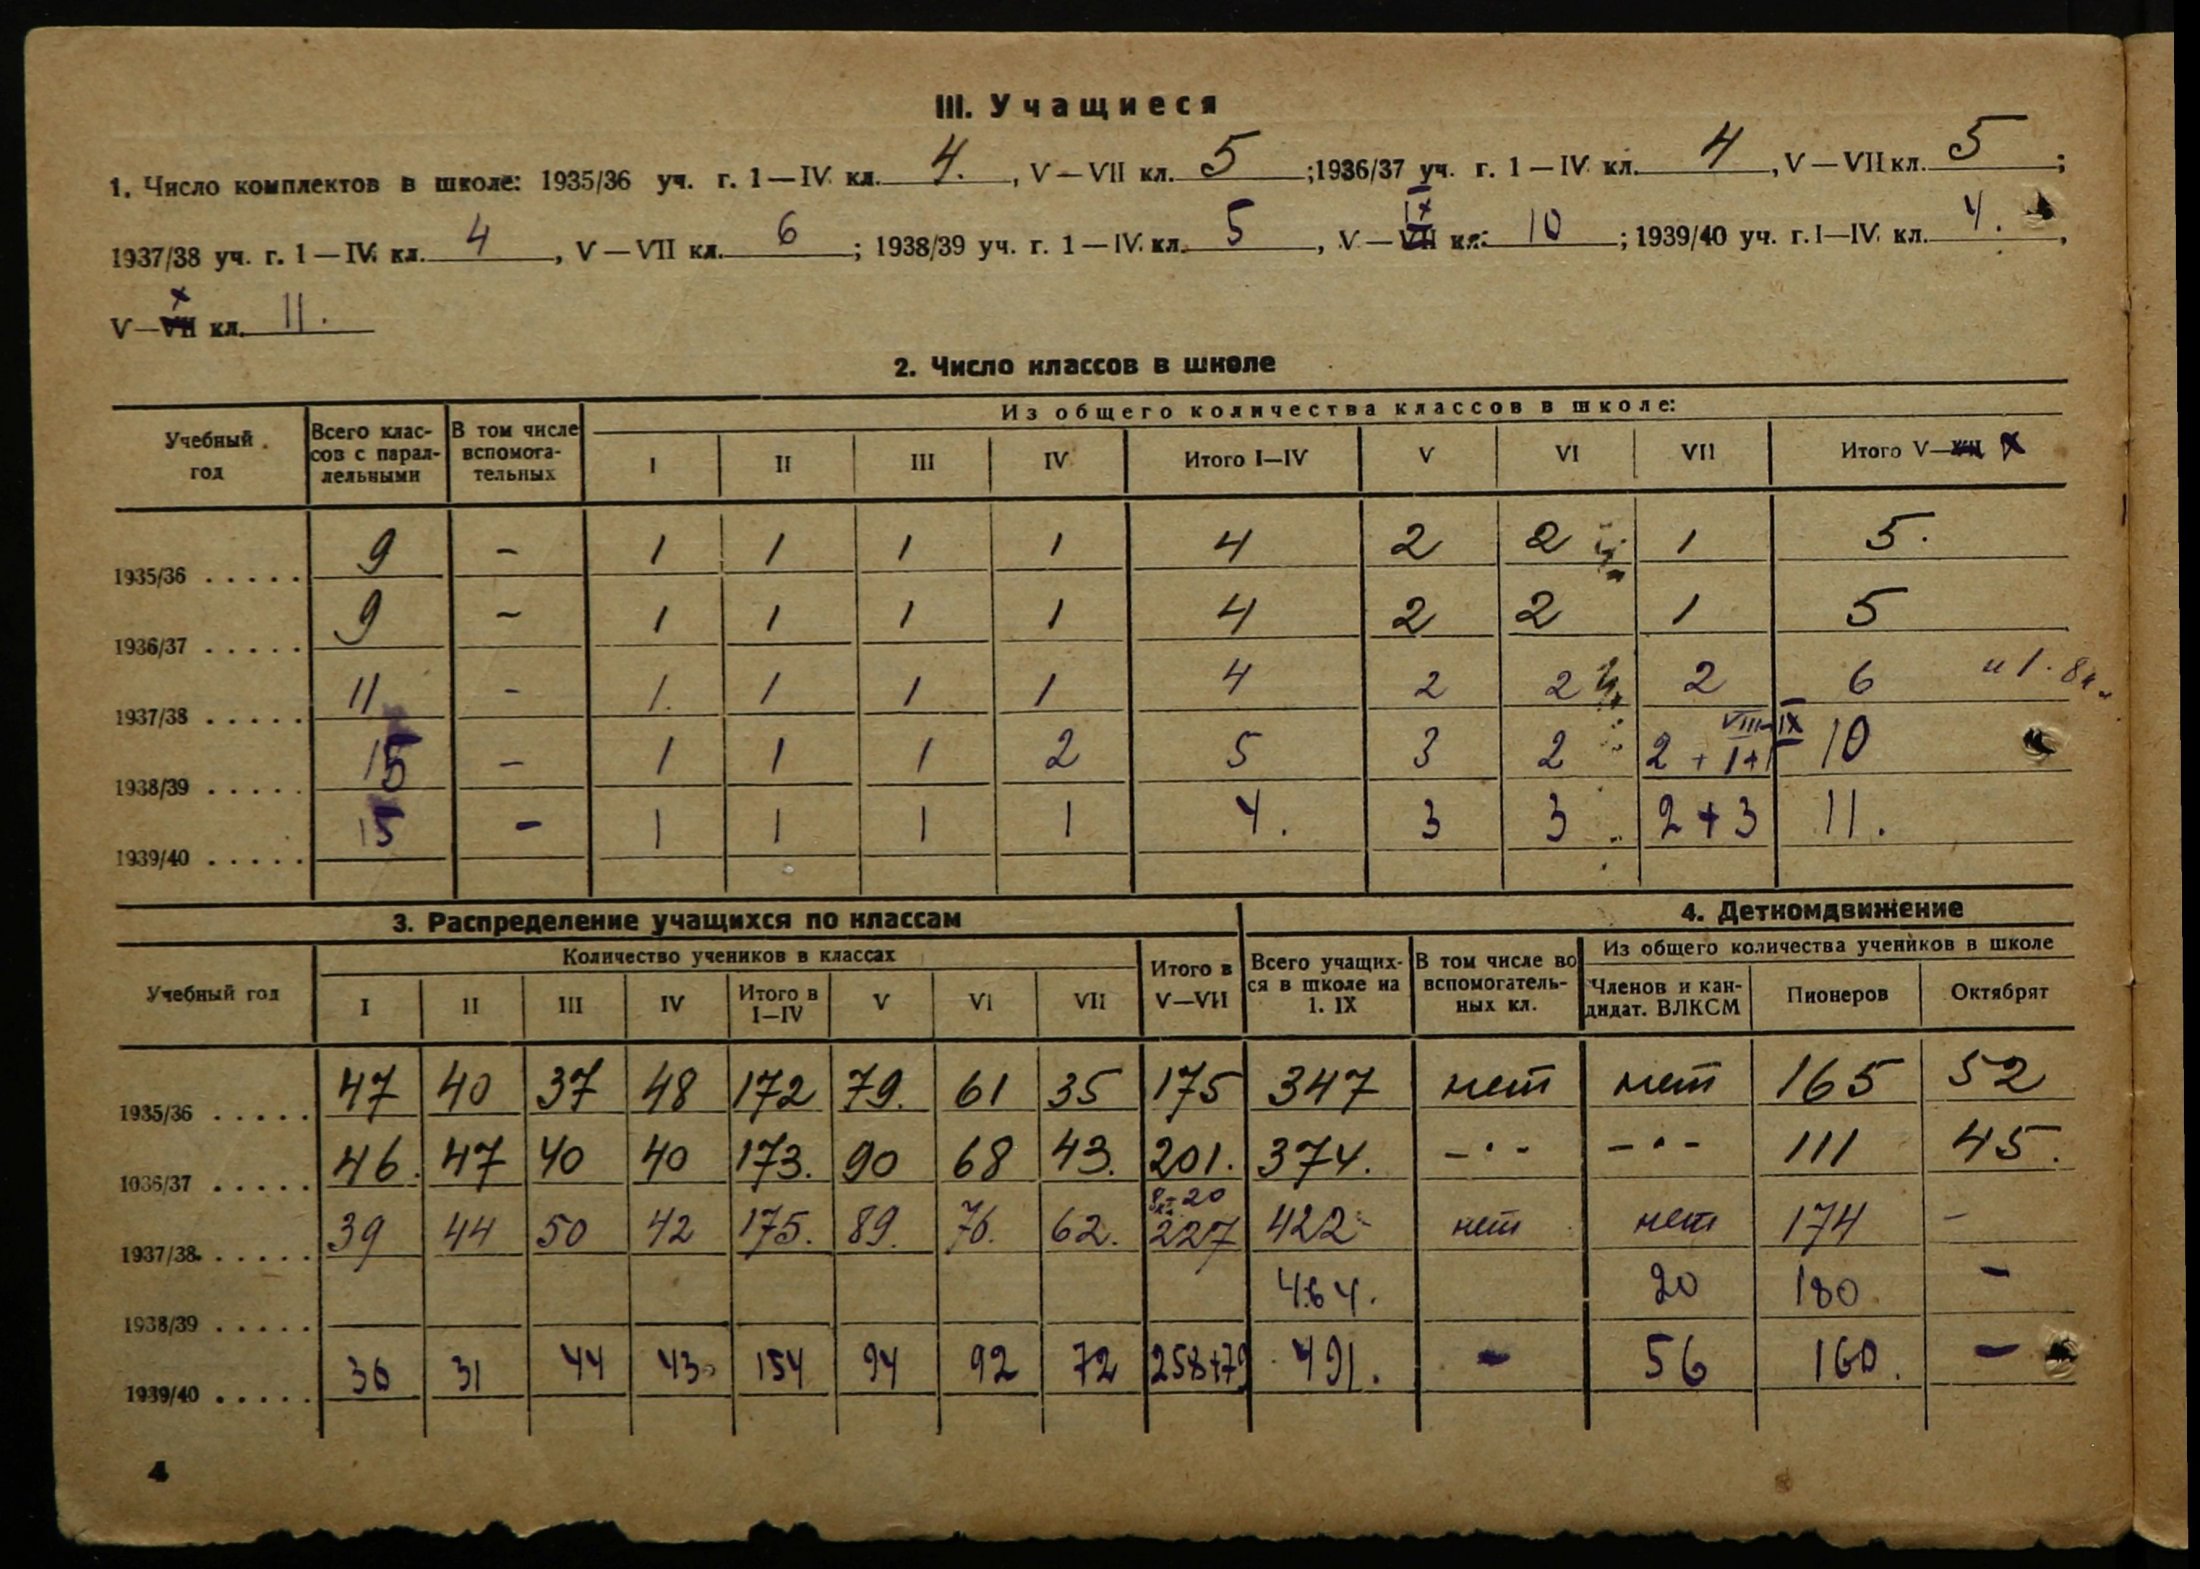 III. Учащиеся
1. Число комплектов в школе: 1935/36 уч. г. 1—IV кл. 4. , V—VII кл. 5 ; 1936/37 уч. г. 1—IV кл. 4 , V—VII кл. 5 ;
1937/38 уч. г. 1—IV кл. 4 , V—VII кл. 6 ; 1938/39 уч. г. 1—IV кл. 5 , V—IX кл. 10 ; 1939/40 уч. г. I—IV кл. 4. ,
V—X кл. 11.
2. Число классов в школе
Учебный год | Всего классов с параллельными | В том числе вспомогательных | Из общего количества классов в школе:
I | II | III | IV | Итого I—IV | V | VI | VII | Итого V—X
1935/36 ..... 9 - 1 1 1 1 4 2 2 1 5.
1936/37 ..... 9 - 1 1 1 1 4 2 2 1 5
1937/38 ..... 11 - 1. 1 1 1 4 2 2 2 6 и 1. 8 кл.
VIII IX
1938/39 ..... 15 - 1 1 1 2 5 3 2 2 + 1+1 10
1939/40 ..... 15 - 1 1 1 1 4. 3 3 2 + 3 11.
3. Распределение учащихся по классам | 4. Деткомдвижение
Учебный год | Количество учеников в классах | Итого в V—VII | Всего учащихся в школе на 1. IX | В том числе во вспомогательных кл. | Из общего количества учеников в школе
I | II | III | IV | Итого в I—IV | V | VI | VII | Членов и кандидат. ВЛКСМ | Пионеров | Октябрят
1935/36 ..... 47 40 37 48 172 79. 61 35 175 347 нет нет 165 52
1036/37 ..... 46. 47 40 40 173. 90 68 43. 201. 374. -·- -·- 111 45.
8 кл-20
1937/38. ..... 39 44 50 42 175. 89. 76. 62. 227 422 нет нет 174 -
1938/39 ..... 464. 20 180 -
1939/40 ..... 36 31 44 43 154 94 92 72 258+79 491. - 56 160. -
4